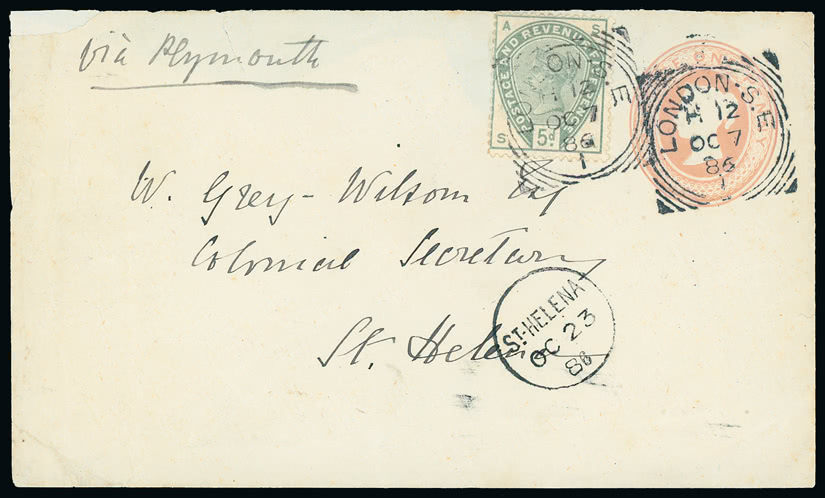 via Plymouth
A S
POSTAGE AND REVENUE
5d
S
LONDON·S.E
H 12
OC 7
86
1
LONDON·S.E
H 12
OC 7
86
1
ONE PENNY
W. Grey-Wilson Esq
Colonial Secretary
St. Helena
ST. HELENA
OC 23
86